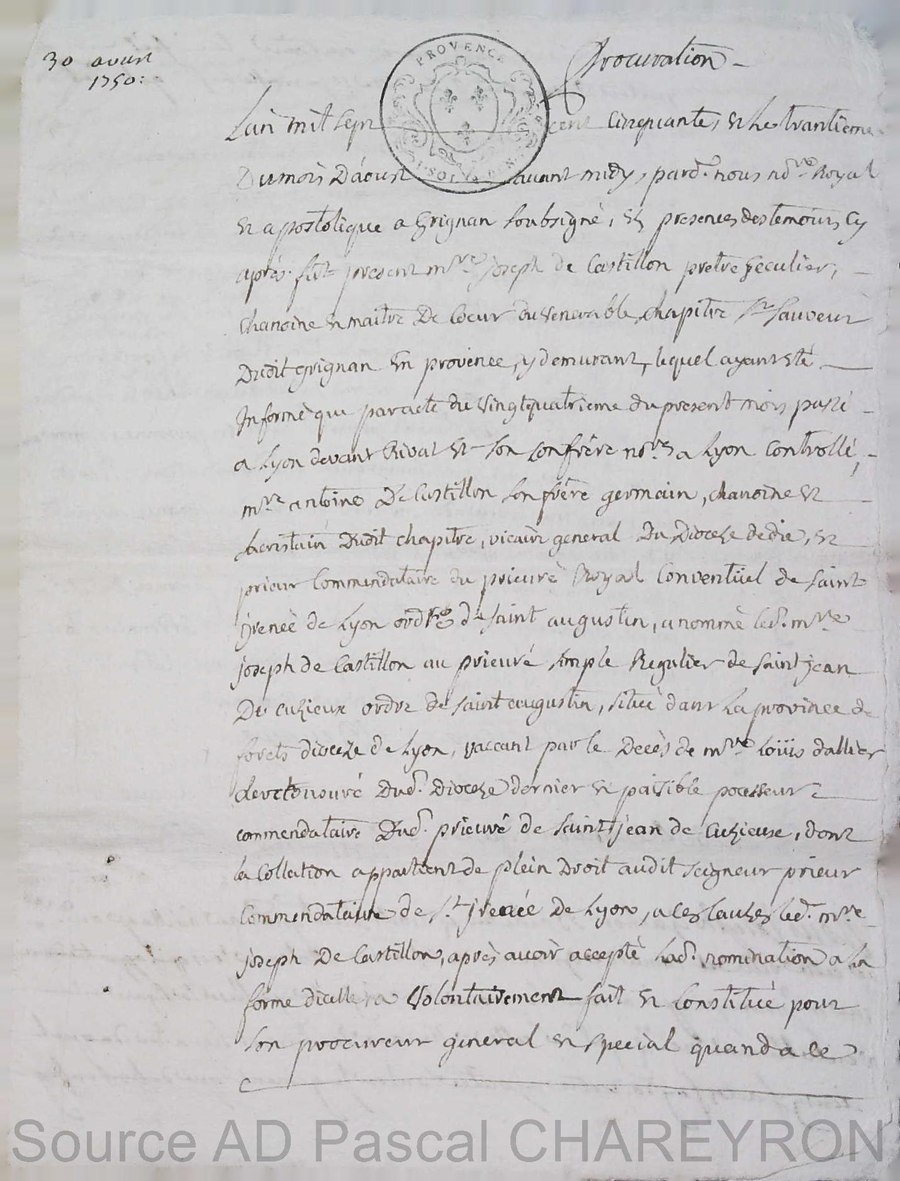 30 aoust
1750:
Procuration
PROVENCE
L'an mil sept cent cinquante, & le trantieme
Du mois D'aoust avant midy, pard.t nous no.re Royal
& apostolique a Grignan soubsigné, & presences des temoins cy
aprés. fut present m.re joseph de Castillon pretre seculier,
chanoine & maitre De Coeur du venerable chapitre S.t Sauveur
Dudit grignan En provence, y demurant, lequel ayant eté
Informé que par acte du vingt quatrieme du present mois passé
a Lyon devant Rivat & son confrère no.res a Lyon Controllé,
m.re antoine De Castillon son frère germain, chanoine &
sacristain Dudit chapitre, vicaire general Du Dioceze de die, &
prieur Commendataire du prieuré Royal Conventüel de Saint
jrenée de Lyon ordre de Saint augustin, a nommé led. m.re
joseph de Castillon au prieuré simple Regulier de Saint jean
De cuzieux ordre de Saint augustin, situé dans La province de
forets dioceze de Lyon, vaccant par le Decès de m.re Loüis dallier
Dud. Dioceze dernier & paisible possesseur
commendataire Dud. prieuré de Saint jean de Cuzieux, dont
la Collation appartient de plein Droit audit Seigneur prieur
Commendataire de S.t jrenée De Lyon, a ces causes led. m.re
joseph De Castillon, après avoir accepté Lad. nomination a La
forme dicelle a Volontairement fait & Constitué pour
son procureur general & special quand a ce
Source AD Pascal CHAREYRON